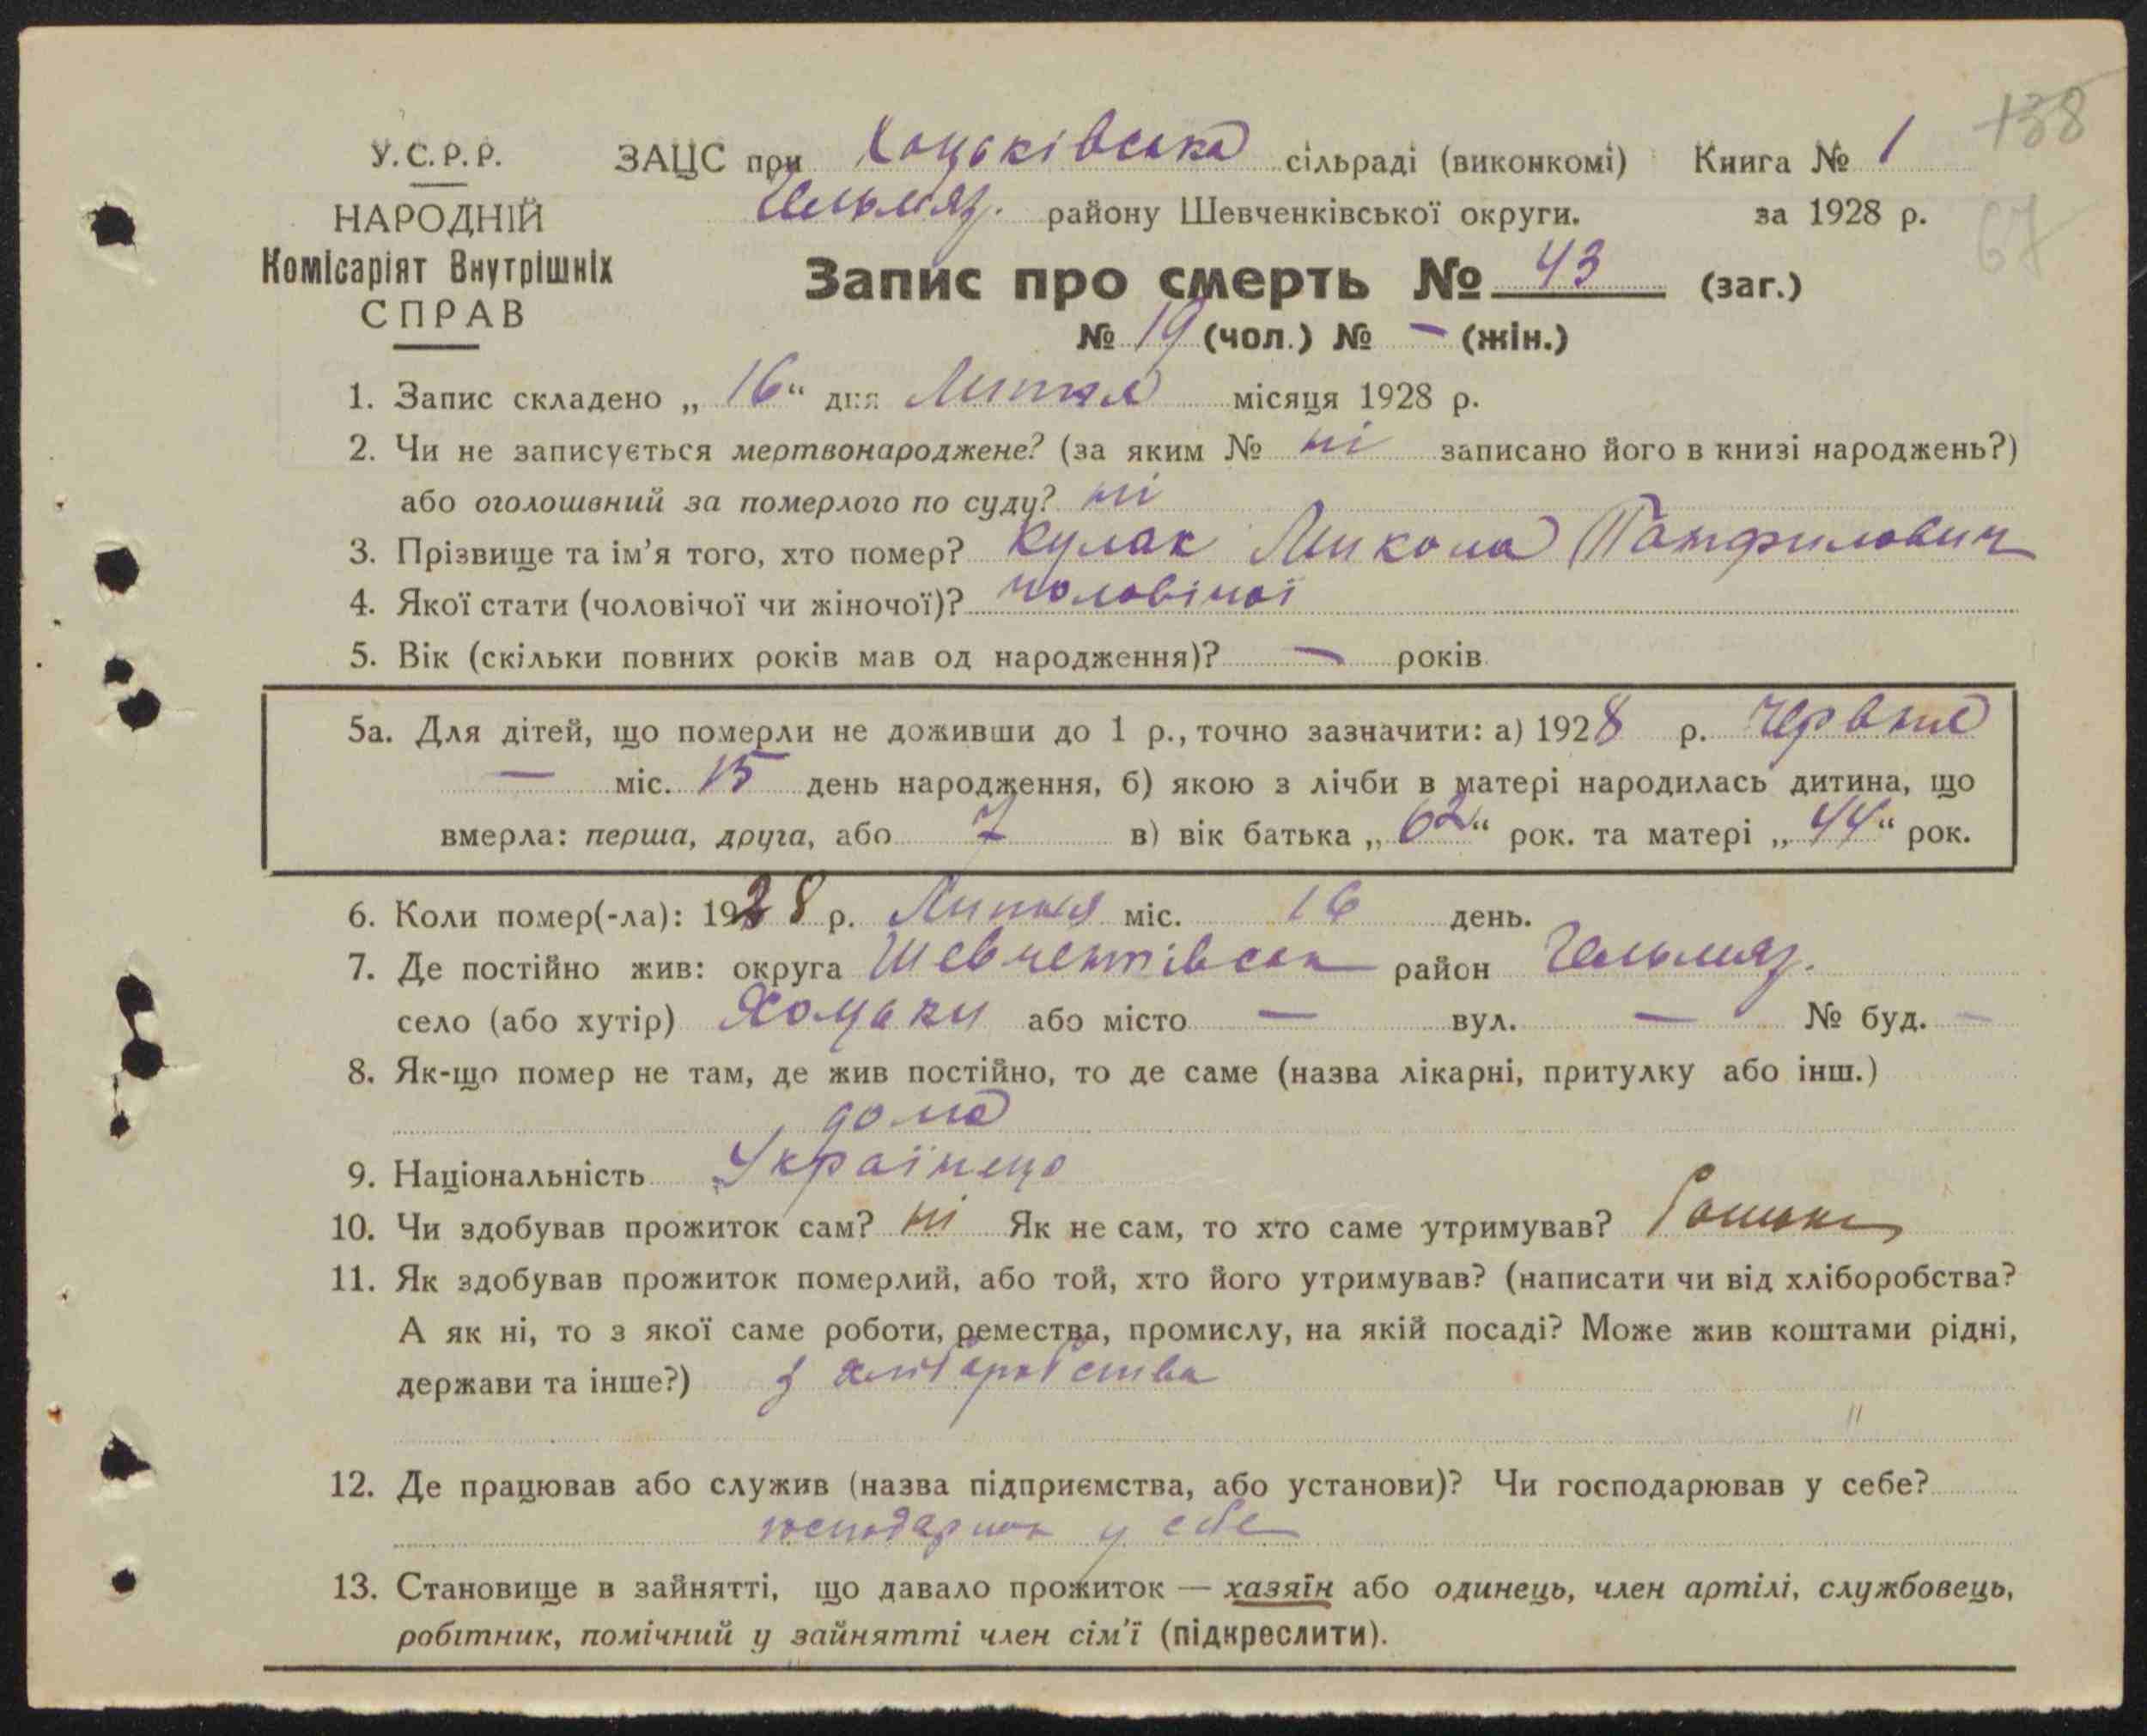 138
У.С.Р.Р. ЗАЦС при Хоцьківська сільраді (виконкомі) Книга № 1
Гельмяз. району Шевченківської округи. за 1928 р.
67
НАРОДНІЙ
Комісаріят Внутрішніх
СПРАВ
Запис про смерть № 43 (заг.)
№ 19 (чол.) № – (жін.)
1. Запис складено „ 16 “ дня Липня місяця 1928 р.
2. Чи не записується мертвонароджене? (за яким № ні записано його в книзі народжень?)
або оголошений за померлого по суду? ні
3. Прізвище та ім’я того, хто помер? Кулак Микола Панфилович
4. Якої стати (чоловічої чи жіночої)? чоловічої
5. Вік (скільки повних років мав од народження)? – років
5а. Для дітей, що померли не доживши до 1 р., точно зазначити: а) 1928 р. Червня
– міс. 15 день народження, б) якою з лічби в матері народилась дитина, що
вмерла: перша, друга, або 7 в) вік батька „ 62 “ рок. та матері „ 44 “ рок.
6. Коли помер(-ла): 1928 р. Липня міс. 16 день.
7. Де постійно жив: округа Шевченківськ район Гельмяз.
село (або хутір) Хоцьки або місто – вул. – № буд. –
8. Як-що помер не там, де жив постійно, то де саме (назва лікарні, притулку або інш.)
дома
9. Національність Українець
10. Чи здобував прожиток сам? ні Як не сам, то хто саме утримував?
11. Як здобував прожиток померлий, або той, хто його утримував? (написати чи від хліборобства?
А як ні, то з якої саме роботи, ремества, промислу, на якій посаді? Може жив коштами рідні,
держави та інше?) з хліборобства
12. Де працював або служив (назва підприємства, або установи)? Чи господарював у себе?
у себе
13. Становище в зайнятті, що давало прожиток — хазяїн або одинець, член артілі, службовець,
робітник, помічний у зайнятті член сім’ї (підкреслити).